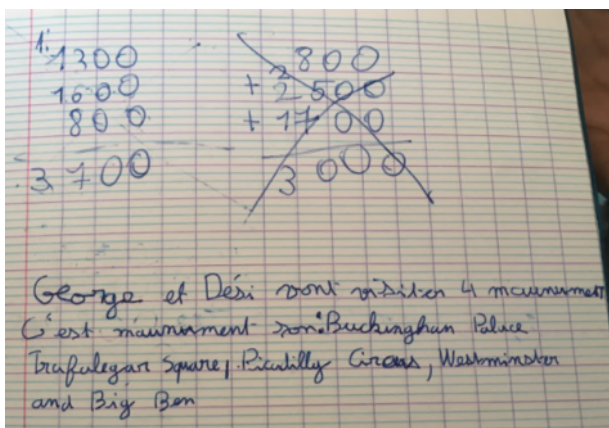 1.
1300
1600
800
3700
800
+ 2500
+ 1700
3000
George et Dési vont visiter 4 maunument
C'est maunument son: Buckinghan Palace
Trafalegar Square, Picadilly Circus, Westminster
and Big Ben